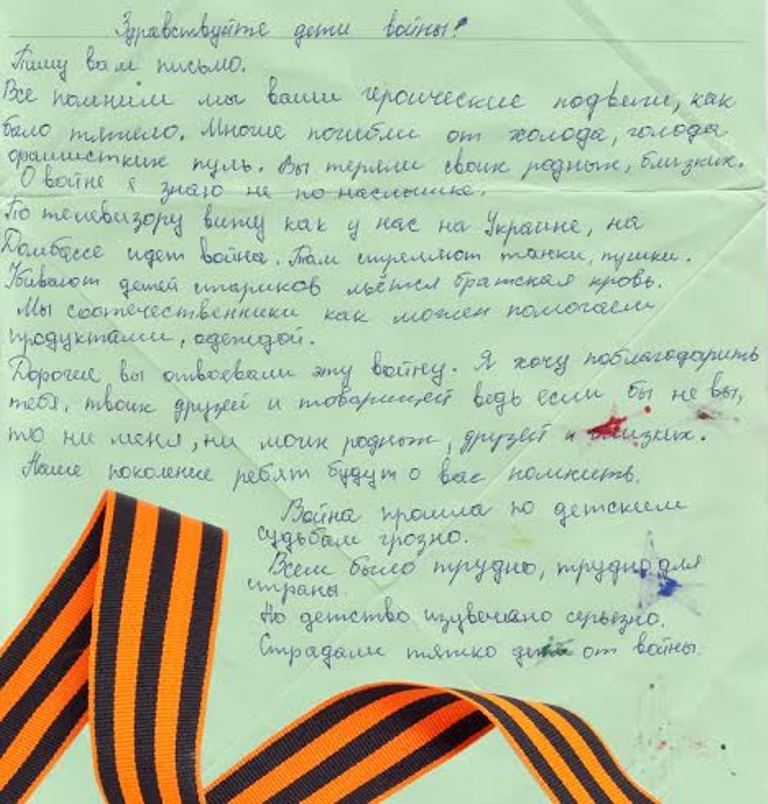 Здравствуйте дети войны!
Пишу вам письмо.
Все помним мы ваши героические подвеги, как
было тяжело. Многие погибли от холода, голода
фашистких пуль. Вы теряли своих родных, близких.
О войне я знаю не по наслышке.
По телевизору вижу как у нас на Украине, на
Домбассе идет война. Там стреляют танки, пушки.
Убивают детей стариков льётся братская кровь.
Мы соотечественники как можем помогаем
продуктами, одеждой.
Дорогие вы отвоевали эту войну. Я хочу поблагодарить
тебя, твоих друзей и товарищей ведь если бы не вы,
то ни меня, ни моих родных, друзей и близких.
Наше поколение ребят будут о вас помнить.
Война прошла по детским
судьбам грозно.
Всем было трудно, трудно для
страны.
Но детство изувечано серьезно.
Страдали тяжко дети от войны.